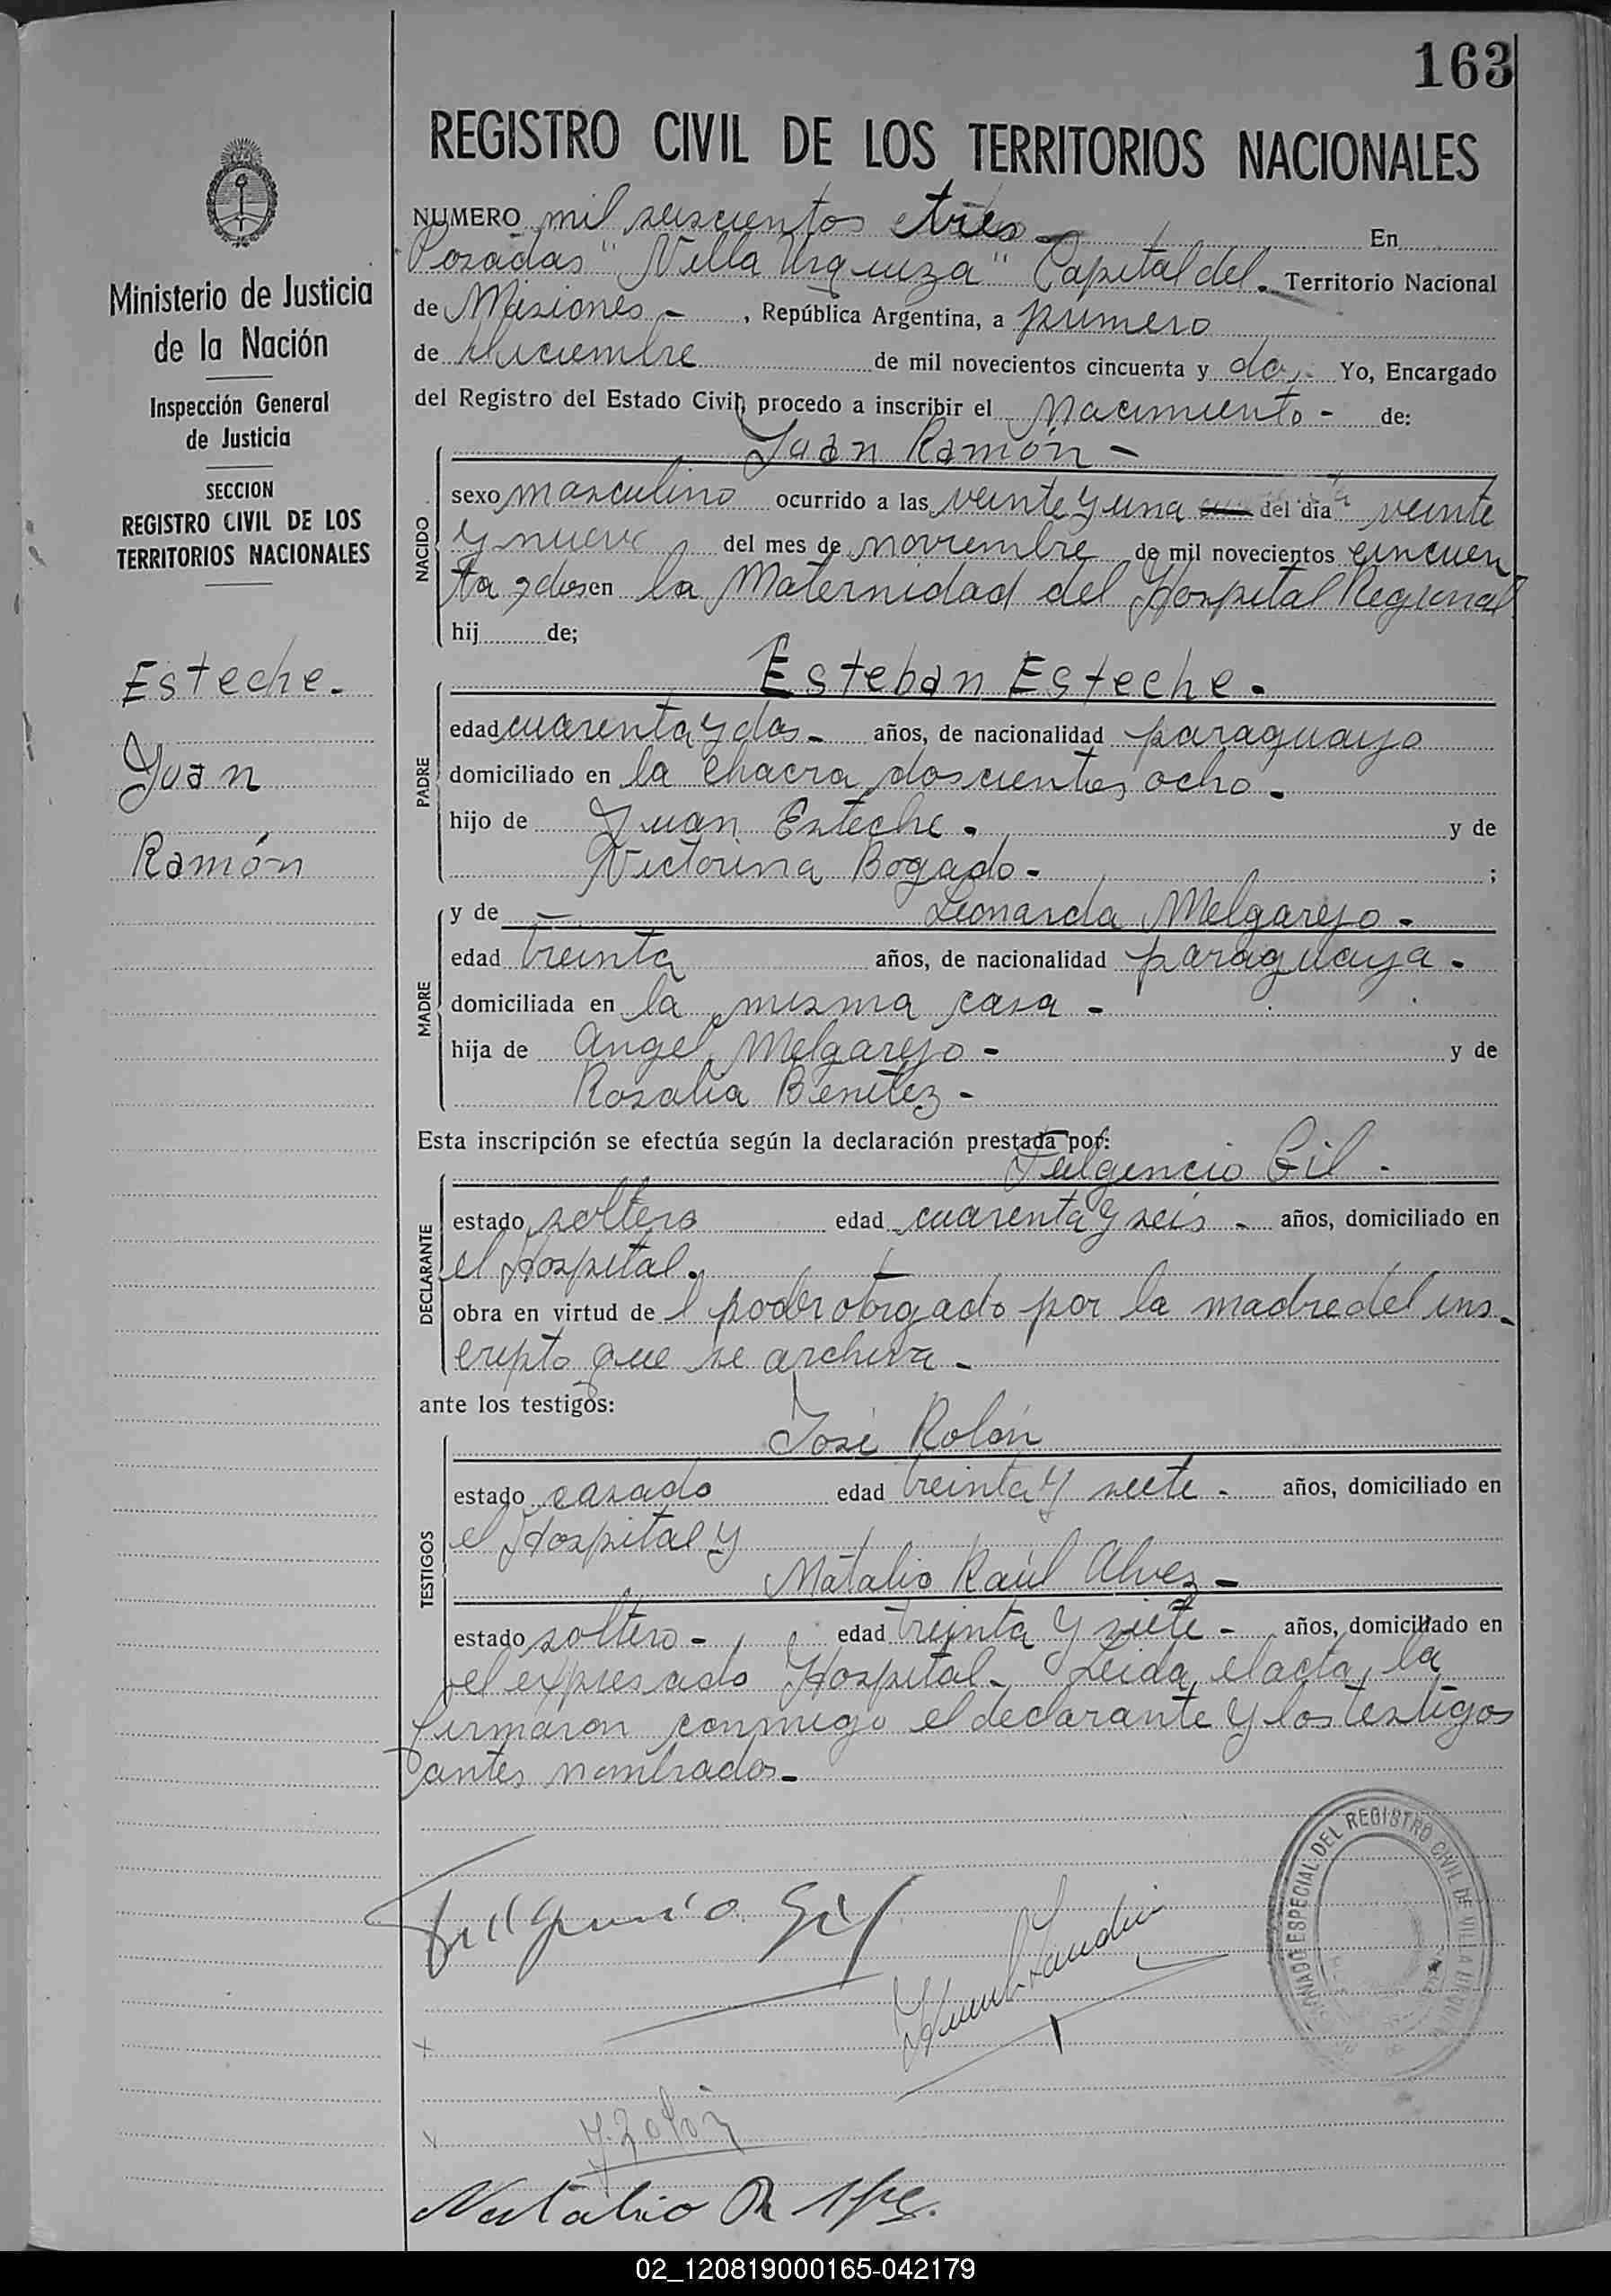 163
REGISTRO CIVIL DE LOS TERRITORIOS NACIONALES
NUMERO mil seiscientos tres - En
Posadas "Villa Urquiza" Capital del Territorio Nacional
de Misiones -, República Argentina, a primero
de diciembre de mil novecientos cincuenta y dos. Yo, Encargado
del Registro del Estado Civil, procedo a inscribir el Nacimiento - de:
NACIDO
Juan Ramón -
sexo masculino ocurrido a las veinte y una del día veinte
y nueve del mes de noviembre de mil novecientos cincuen
ta y dos en la Maternidad del Hospital Regional
hij de;
PADRE
Esteban Esteche.
edad cuarenta y dos - años, de nacionalidad paraguayo
domiciliado en la chacra doscientos ocho.
hijo de Juan Esteche. y de
Victorina Bogado - ;
MADRE
y de - Leonarda Melgarejo -
edad treinta años, de nacionalidad paraguaya -
domiciliada en la misma casa -
hija de Angel Melgarejo - y de
Rosalia Benitez -
Esta inscripción se efectúa según la declaración prestada por:
DECLARANTE
Fulgencio Gil -
estado soltero edad cuarenta y seis - años, domiciliado en
el Hospital.
obra en virtud de l poder otorgado por la madre del ins-
cripto que se archiva -
ante los testigos:
TESTIGOS
José Rolón
estado casado edad treinta y siete - años, domiciliado en
el Hospital y
Natalio Raúl Alvez -
estado soltero - edad treinta y siete - años, domiciliado en
el expresado Hospital - Leida el acta, la
firmaron conmigo el declarante y los testigos
antes nombrados -
Fulgencio Gil
J. Rolón
Natalio R
ESPECIAL DEL REGISTRO CIVIL DE VILLA URQUIZA
Ministerio de Justicia
de la Nación
Inspección General
de Justicia
SECCION
REGISTRO CIVIL DE LOS
TERRITORIOS NACIONALES
Esteche.
Juan
Ramón
02_120819000165-042179